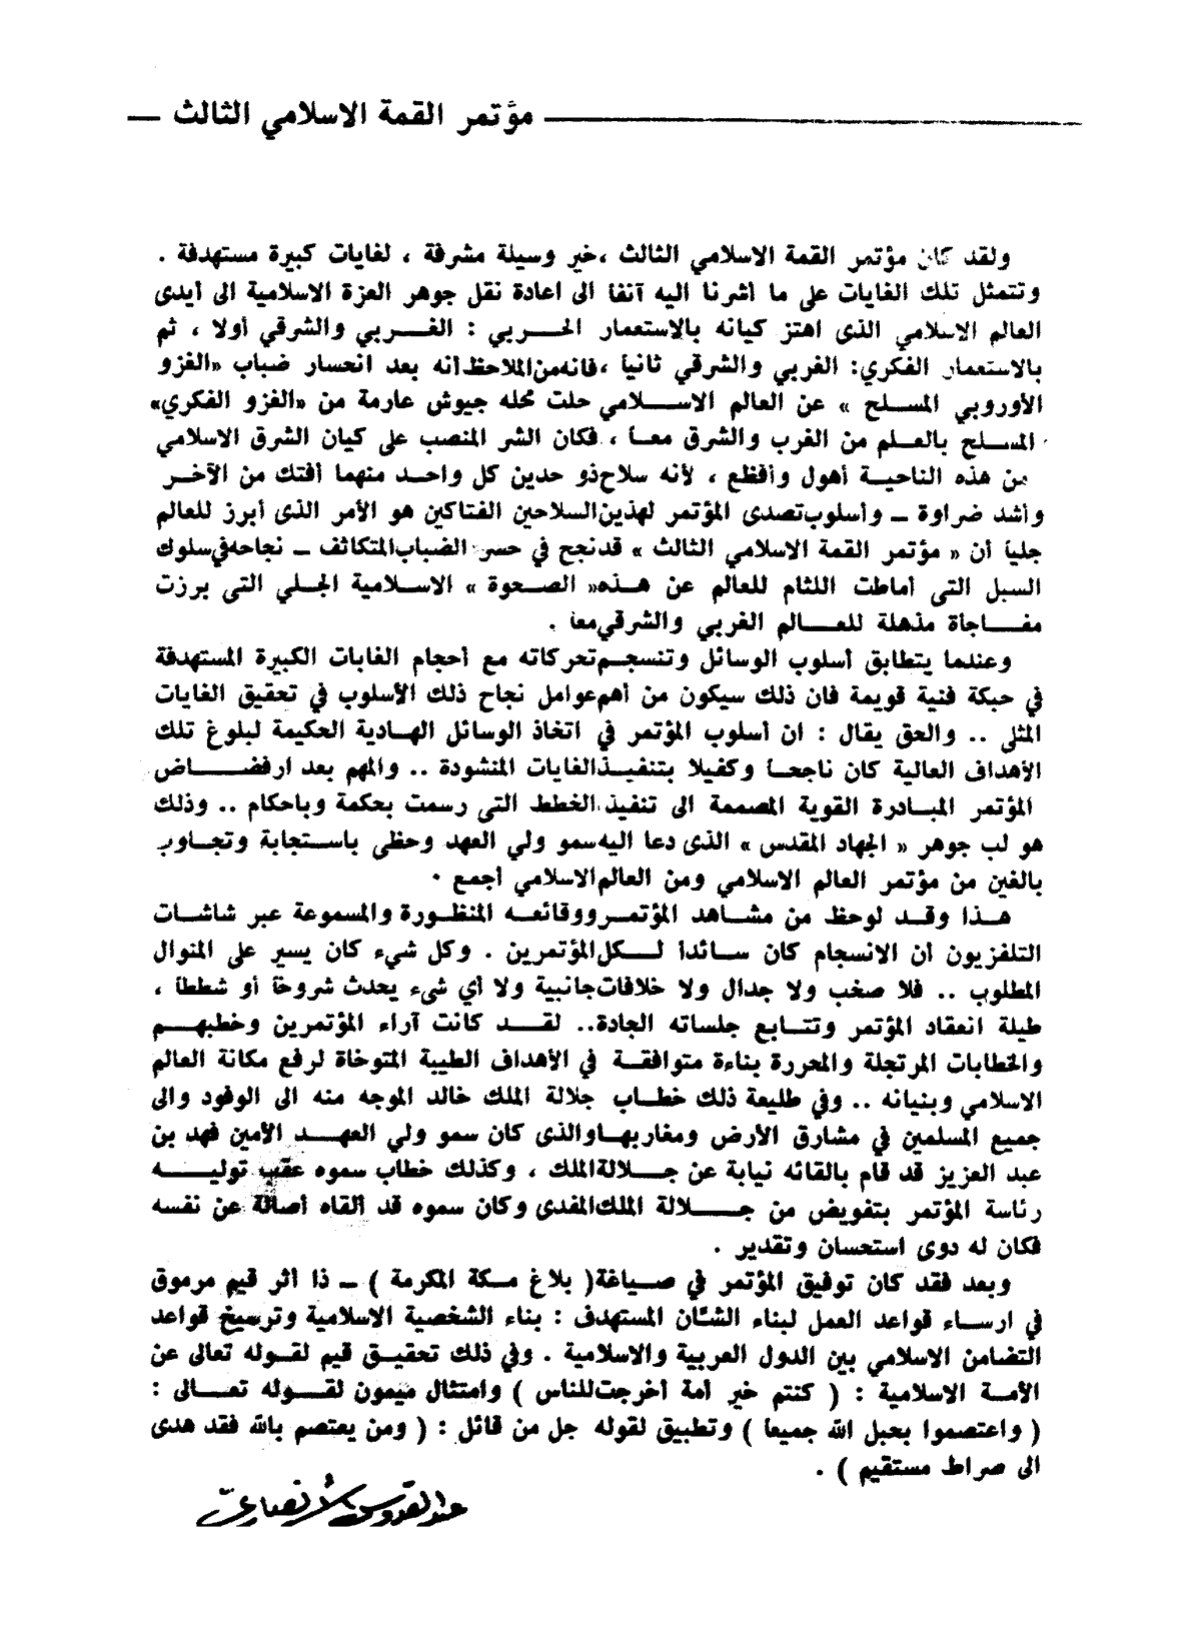 مؤتمر القمة الاسلامي الثالث
ولقد كان مؤتمر القمة الاسلامي الثالث ،خير وسيلة مشرفة ، لغايات كبيرة مستهدفة .
وتتمثل تلك الغايات على ما أشرنا اليه آنفا الى اعادة نقل جوهر العزة الاسلامية الى أيدى
العالم الاسلامي الذى اهتز كيانه بالاستعمار الحربي : الغربي والشرقي أولا ، ثم
بالاستعمار الفكري: الغربي والشرقي ثانيا ،فانه من الملاحظ أنه بعد انحسار ضباب «الغزو
الأوروبي المسلح » عن العالم الاسلامي حلت محله جيوش عارمة من «الغزو الفكري»
المسلح بالعلم من الغرب والشرق معا ، فكان الشر المنصب على كيان الشرق الاسلامي
من هذه الناحية أهول وأفظع ، لأنه سلاح ذو حدين كل واحد منهما أفتك من الآخر
وأشد ضراوة – وأسلوب تصدى المؤتمر لهذين السلاحين الفتاكين هو الأمر الذى أبرز للعالم
جليا أن « مؤتمر القمة الاسلامي الثالث » قد نجح في حسر الضباب المتكاثف – نجاحه في سلوك
السبل التى أماطت اللثام للعالم عن هذه « الصحوة » الاسلامية الجلي التى برزت
مفاجاة مذهلة للعالم الغربي والشرقي معا .
وعندما يتطابق أسلوب الوسائل وتنسجم تحركاته مع أحجام الغايات الكبيرة المستهدفة
في حبكة فنية قويمة فان ذلك سيكون من أهم عوامل نجاح ذلك الأسلوب في تحقيق الغايات
المثلى .. والحق يقال : ان أسلوب المؤتمر في اتخاذ الوسائل الهادية الحكيمة لبلوغ تلك
الأهداف العالية كان ناجحا وكفيلا بتنفيذ الغايات المنشودة .. والمهم بعد ارفضاض
المؤتمر المبادرة القوية المصممة الى تنفيذ الخطط التى رسمت بحكمة وباحكام .. وذلك
هو لب جوهر « الجهاد المقدس » الذى دعا اليه سمو ولي العهد وحظى باستجابة وتجاوب
بالغين من مؤتمر العالم الاسلامي ومن العالم الاسلامي أجمع .
هذا وقد لوحظ من مشاهد المؤتمر ووقائعه المنظورة والمسموعة عبر شاشات
التلفزيون أن الانسجام كان سائدا لكل المؤتمرين . وكل شيء كان يسير على المنوال
المطلوب .. فلا صخب ولا جدال ولا خلافات جانبية ولا أي شيء يحدث شروخا أو شططا ،
طيلة انعقاد المؤتمر وتتابع جلساته الجادة.. لقد كانت آراء المؤتمرين وخطبهم
والخطابات المرتجلة والمحررة بناءة متوافقة في الأهداف الطيبة المتوخاة لرفع مكانة العالم
الاسلامي وبنيانه .. وفي طليعة ذلك خطاب جلالة الملك خالد الموجه منه الى الوفود والى
جميع المسلمين في مشارق الأرض ومغاربها والذى كان سمو ولي العهد الأمين فهد بن
عبد العزيز قد قام بالقائه نيابة عن جلالة الملك ، وكذلك خطاب سموه عقب توليه
رئاسة المؤتمر بتفويض من جلالة الملك المفدى وكان سموه قد ألقاه أصالة عن نفسه
فكان له دوى استحسان وتقدير .
وبعد فقد كان توفيق المؤتمر في صياغة ( بلاغ مكة المكرمة ) – ذا أثر قيم مرموق
في ارساء قواعد العمل لبناء الشئان المستهدف : بناء الشخصية الاسلامية وترسيخ قواعد
التضامن الاسلامي بين الدول العربية والاسلامية . وفي ذلك تحقيق قيم لقوله تعالى عن
الأمة الاسلامية : ( كنتم خير أمة أخرجت للناس ) وامتثال ميمون لقوله تعالى :
( واعتصموا بحبل الله جميعا ) وتطبيق لقوله جل من قائل : ( ومن يعتصم بالله فقد هدى
الى صراط مستقيم ) .
عبد القدوس الأنصاري